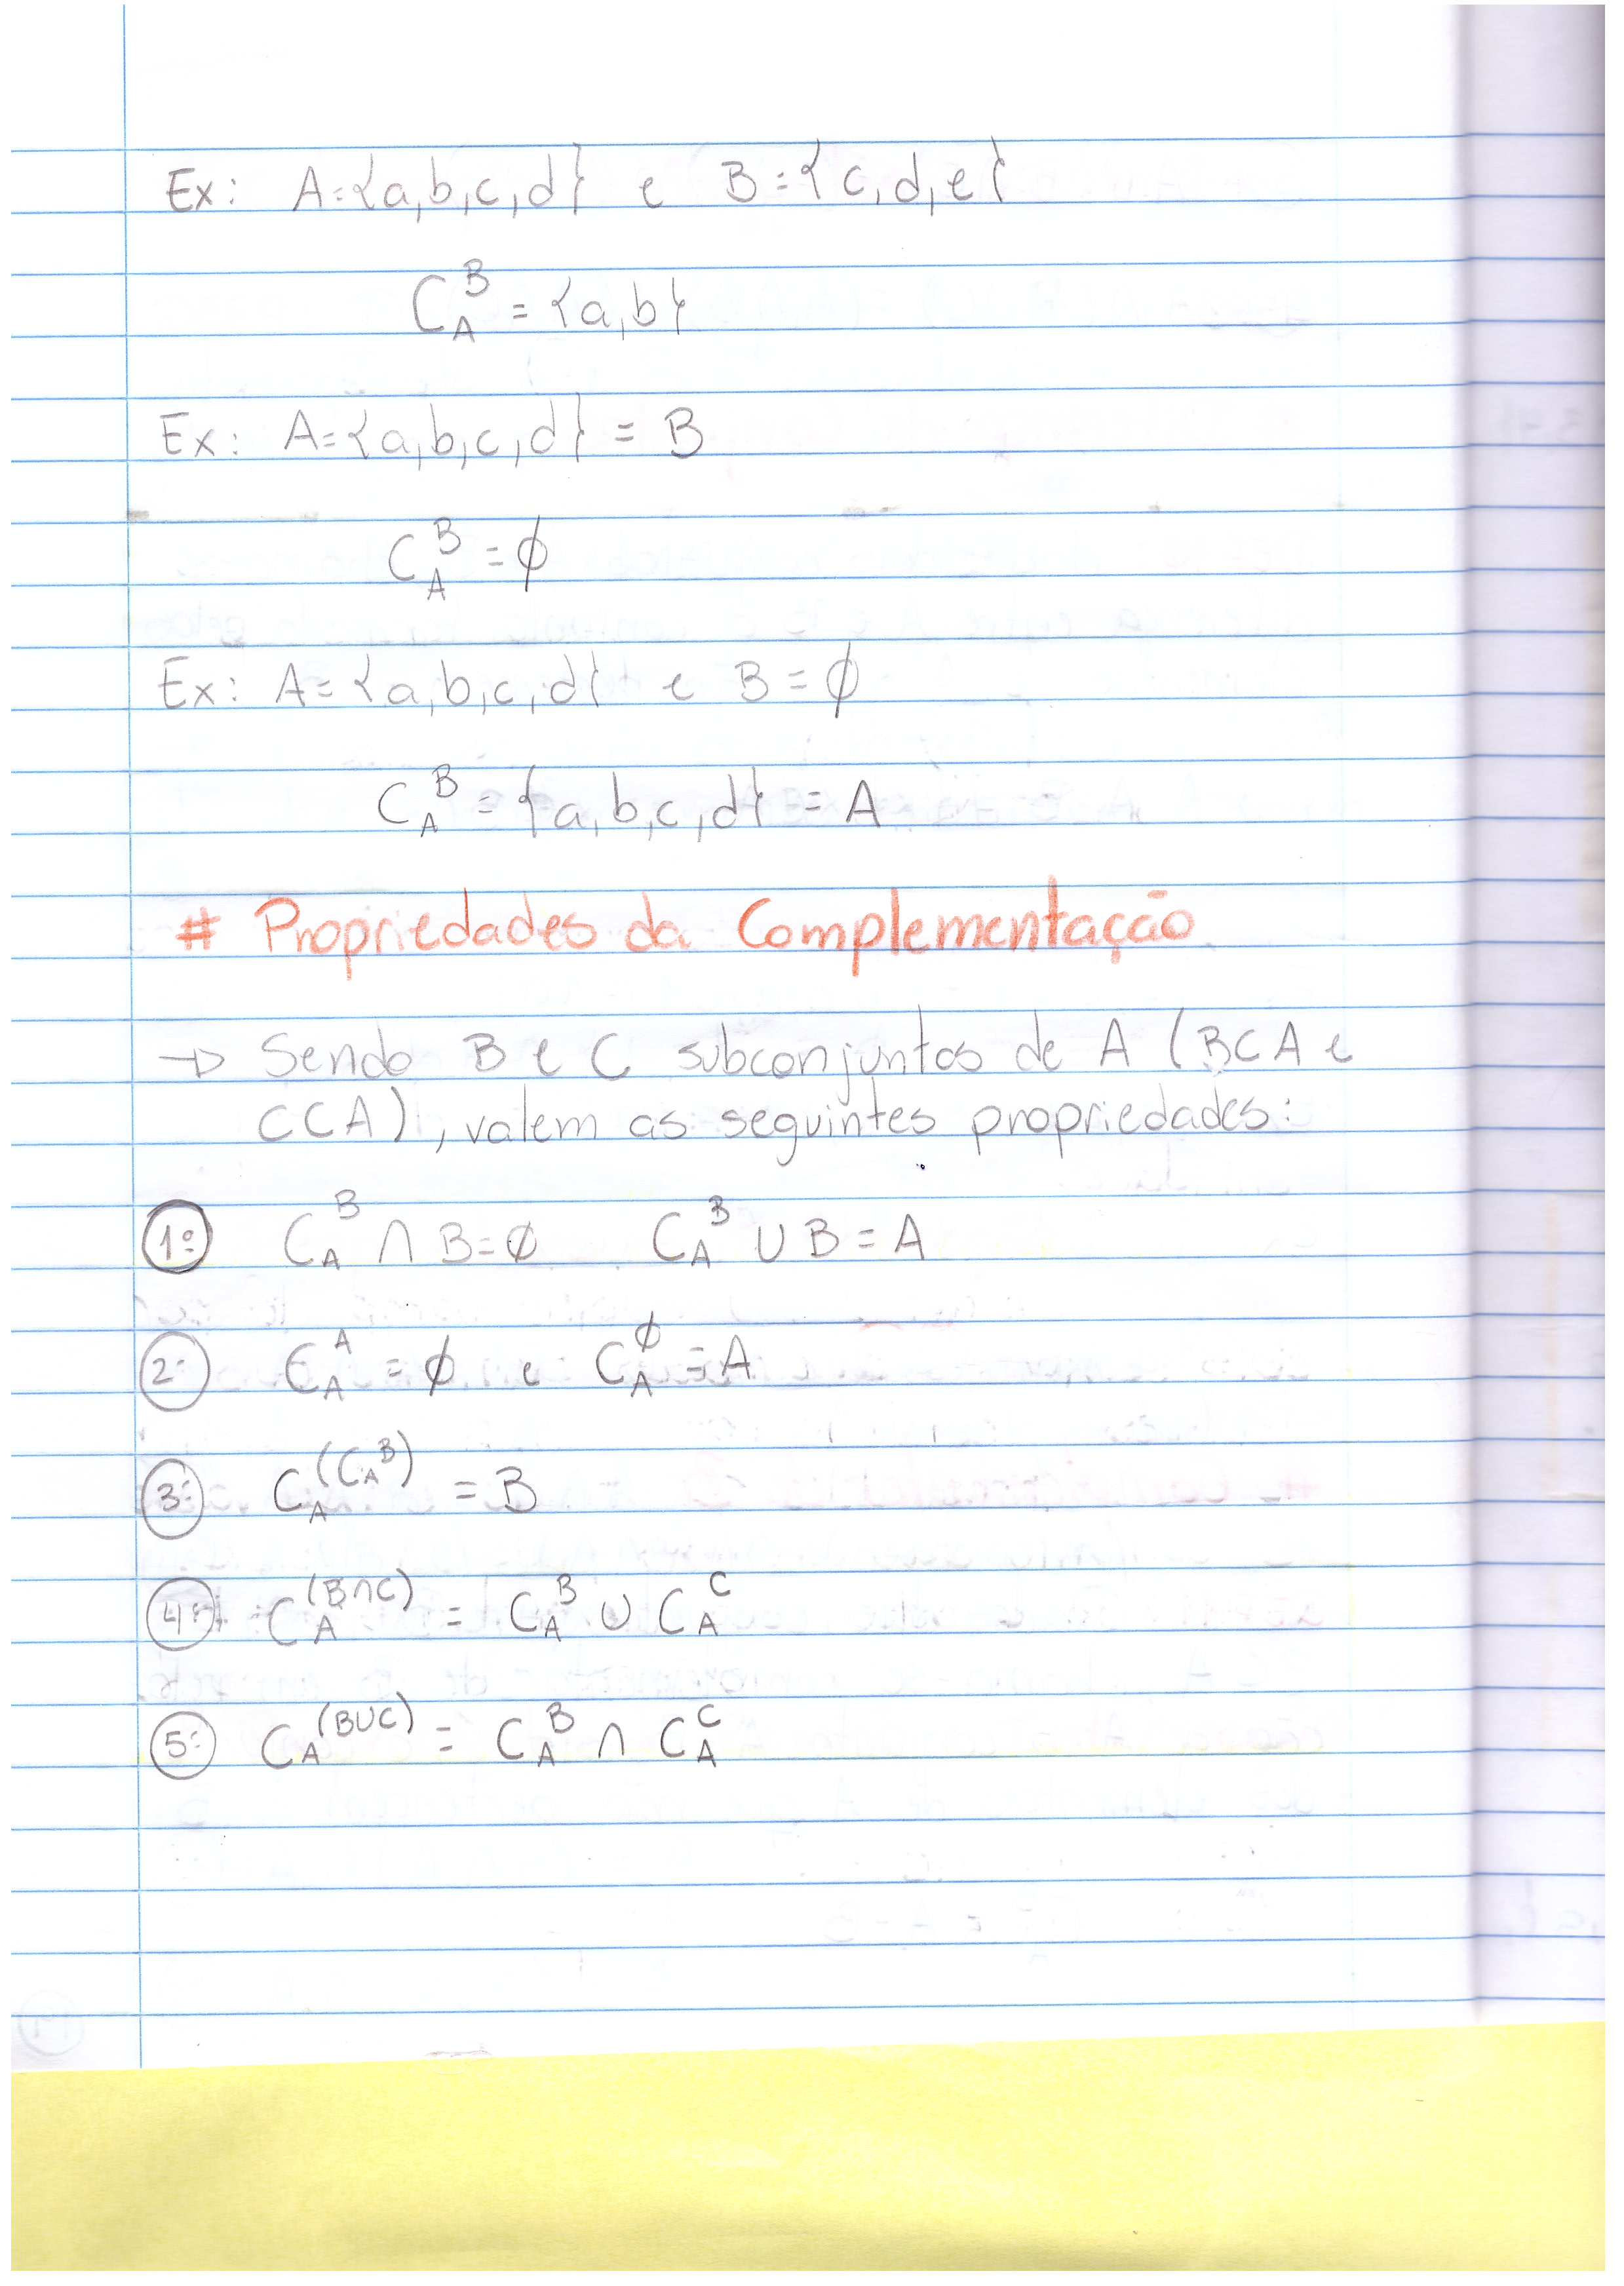 Ex: A={a,b,c,d} e B={c,d,e}
C_A^B = {a,b}
Ex: A={a,b,c,d} = B
C_A^B = ∅
Ex: A={a,b,c,d} e B=∅
C_A^B = {a,b,c,d} = A
# Propriedades da Complementação
→ Sendo B e C subconjuntos de A (B⊂A e
C⊂A), valem as seguintes propriedades:
1º C_A^B ∩ B=∅ C_A^B ∪ B=A
2º C_A^A = ∅ e C_A^∅ = A
3º C_A^(C_A^B) = B
4º C_A^(B∩C) = C_A^B ∪ C_A^C
5º C_A^(B∪C) = C_A^B ∩ C_A^C